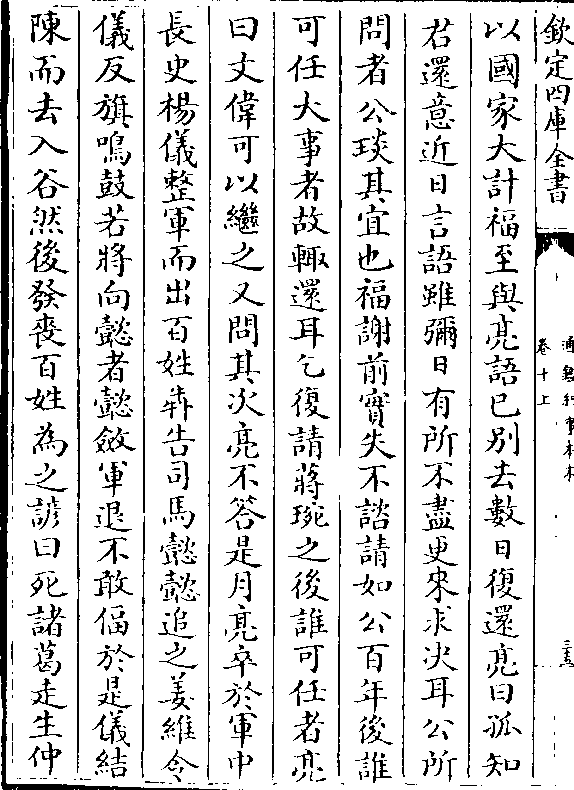 欽定四庫全書
通鑑紀事本末
卷十上
三五
以國家大計福至與亮語已别去數日復還亮曰孤知
君還意近日言語雖彌日有所不盡更來求决耳公所
問者公琰其宜也福謝前實失不諮請如公百年後誰
可任大事者故輙還耳乞復請蔣琬之後誰可任者亮
曰文偉可以繼之又問其次亮不答是月亮卒於軍中
長史楊儀整軍而出百姓犇告司馬懿懿追之姜維令
儀反旗鳴鼓若將向懿者懿斂軍退不敢偪於是儀結
陳而去入谷然後發喪百姓為之諺曰死諸葛走生仲